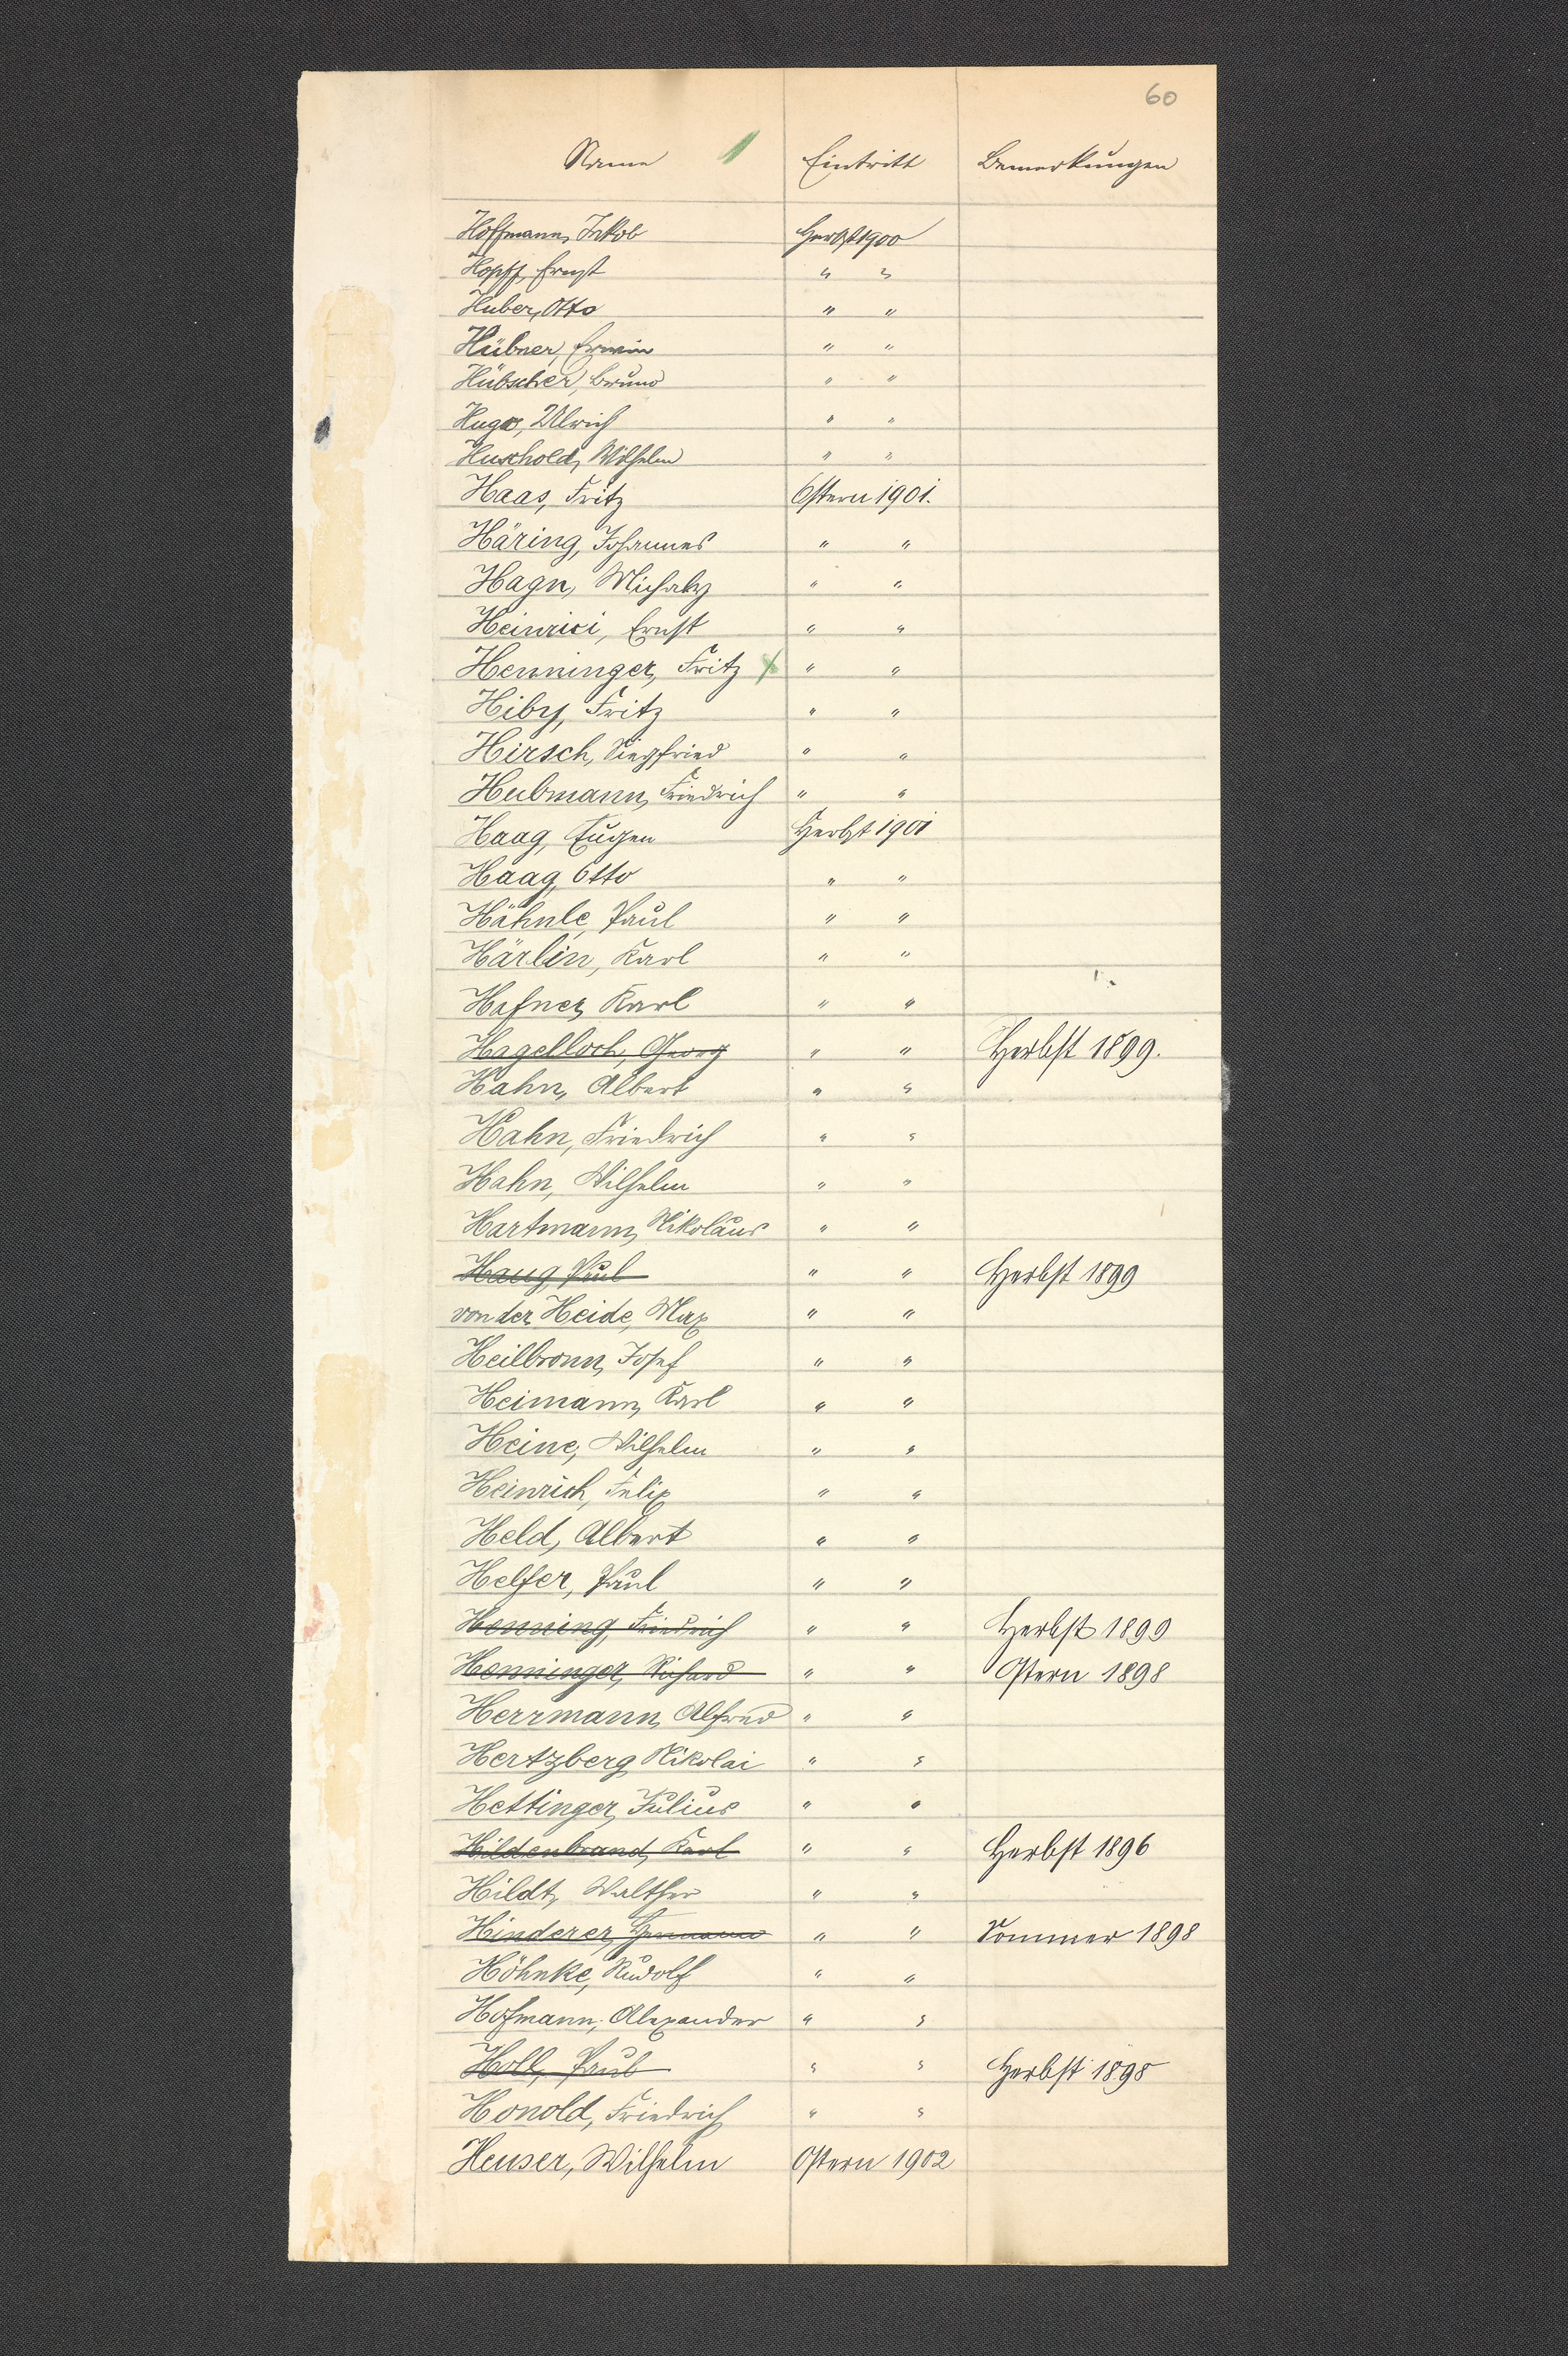 60
Name Eintritt Bemerkungen
Hoffmann, Jakob Herbst 1900
Hopff, Ernst " "
Huber, Otto " "
Hübner, Erwin " "
Hübscher, Bruno " "
Hugo, Ulrich " "
Huschold, Wilhelm " "
Haas, Fritz Ostern 1901.
Häring, Johannes " "
Hagn, " "
Heinrici, Ernst " "
Henninger, Fritz " "
Hiby, Fritz " "
Hirsch, Siegfried " "
Hubmann, Friedrich " "
Haag, Eugen Herbst 1901
Haag, Otto " "
Hähnle, Paul " "
Härlin, Karl " "
Hafner, Karl " "
Hagelloch, Georg " " Herbst 1899.
Hahn, Albert " "
Hahn, Friedrich " "
Hahn, Wilhelm " "
Hartmann, Nikolaus " "
Haug, Paul " " Herbst 1899
von der Heide, Max " "
Heilbronn, Josef " "
Heimann, Karl " "
Heine, Wilhelm " "
Heinrich, Felix " "
Held, Albert " "
Helfer, Paul " "
Henning, Friedrich " " Herbst 1899
Henninger, Richard " " Ostern 1898
Herrmann, Alfred " "
Hertzberg, Nikolai " "
Hettinger, Julius " "
Hildenbrand, Karl " " Herbst 1896
Hildt, Walther " "
Hinderer, Hermann " " Sommer 1898
Höhnke, Rudolf " "
Hofmann, Alexander " "
Holl, Paul " " Herbst 1898
Honold, Friedrich " "
Heuser, Wilhelm Ostern 1902